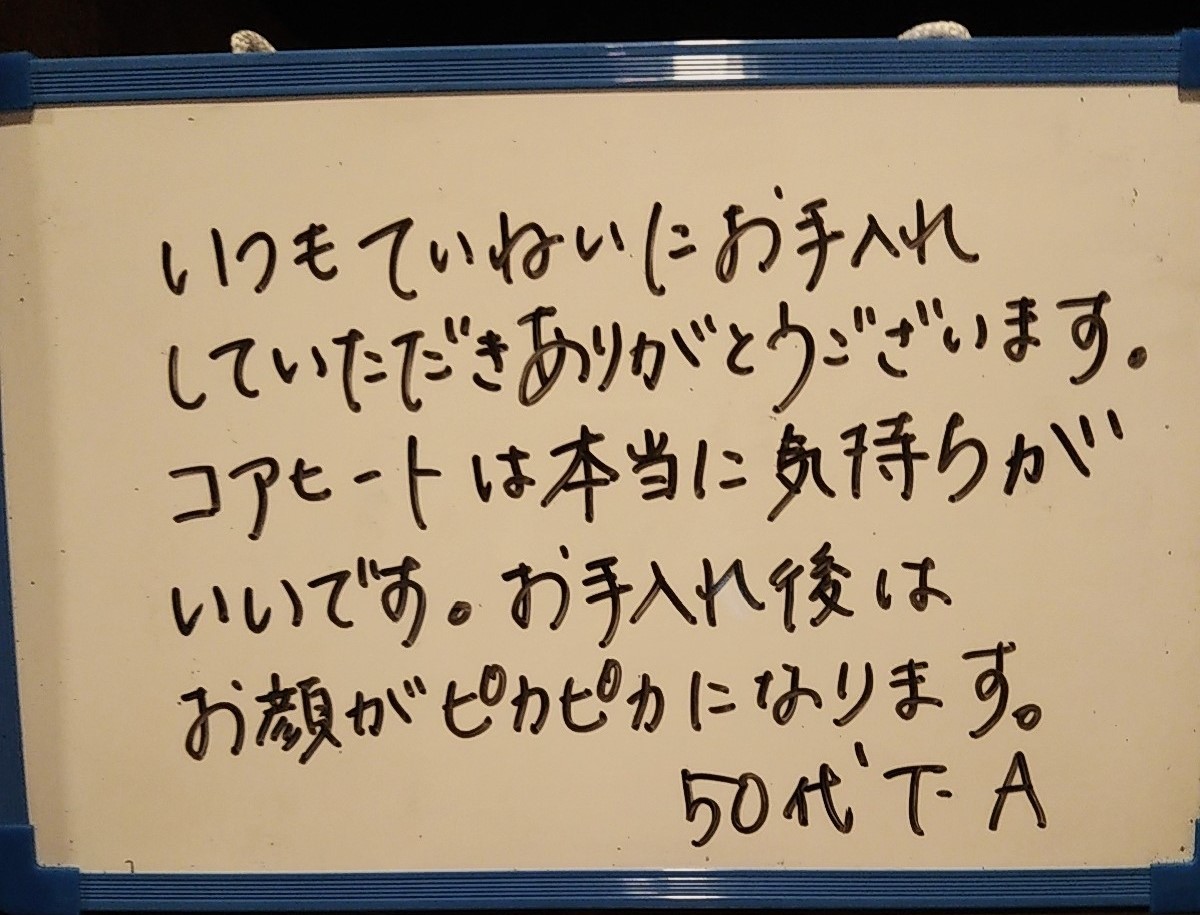 いつもていねいにお手入れ
していただきありがとうございます。
コアヒートは本当に気持ちが
いいです。お手入れ後は
お顔がピカピカになります。
50代 T・A